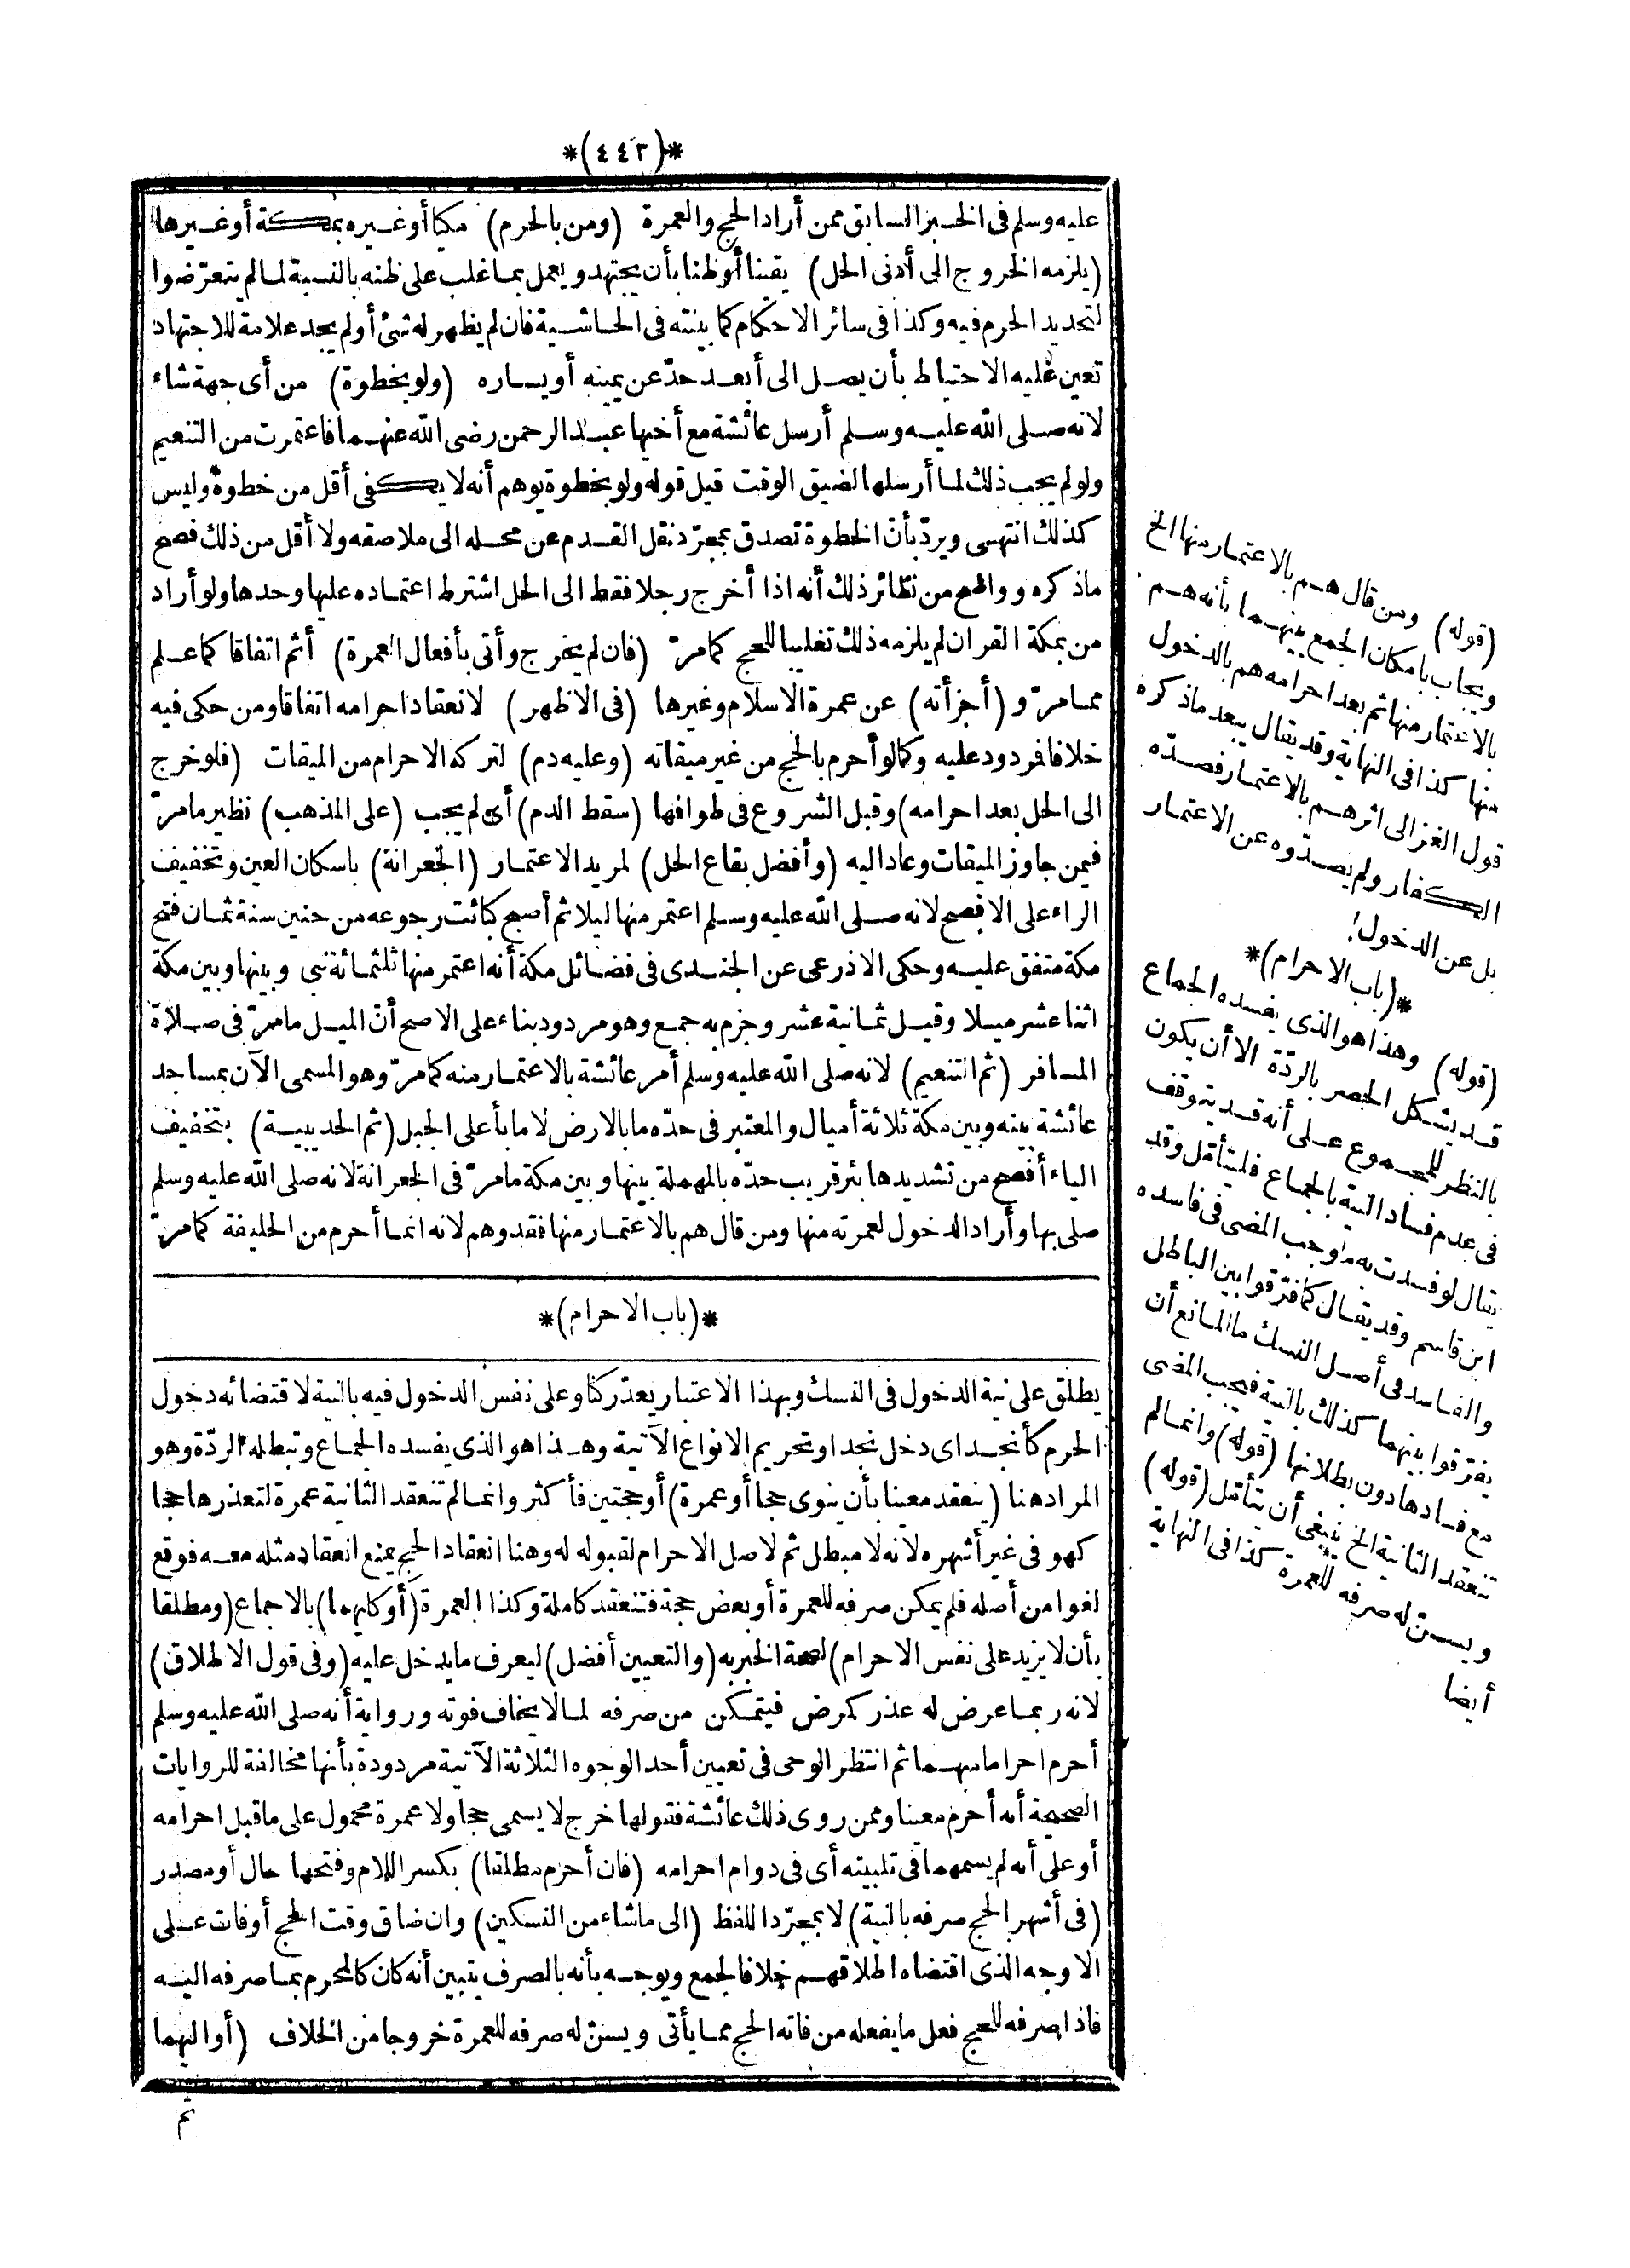 *(٤٤٢)*
عليه وسلم فى الخبر السابق ممن أراد الحج والعمرة (ومن بالحرم) مكيا أو غيره بمكة أو غيرها
(يلزمه الخروج الى أدنى الحل) يقينا أو ظنا بأن يجتهد ويعمل بما غلب على ظنه بالنسبة لما لم يتعرّضوا
لتحديد الحرم فيه وكذا فى سائر الاحكام كما بينته فى الحاشية فان لم يظهر له شئ أو لم يجد علامة للاجتهاد
تعين عليه الاحتياط بأن يصل الى أبعد حدّ عن يمينه أو يساره (ولو بخطوة) من أى جهة شاء
لانه صلى الله عليه وسلم أرسل عائشة مع أخيها عبد الرحمن رضى الله عنهما فاعتمرت من التنعيم
ولو لم يجب ذلك لما أرسلها لضيق الوقت قيل قوله ولو بخطوة يوهم أنه لا يكفى أقل من خطوة وليس
كذلك انتهى ويردّ بأنّ الخطوة تصدق بمجرّد نقل القدم عن محله الى ملاصقه ولا أقل من ذلك فصح
ماذكره وواضح من نظائر ذلك أنه اذا أخرج رجلا فقط الى الحل اشترط اعتماده عليها وحدها ولو أراد
من بمكة القران لم يلزمه ذلك تغليبا للحج كمامرّ (فان لم يخرج وأتى بأفعال العمرة) أثم اتفاقا كما علم
ممامرّ و (أجزأته) عن عمرة الاسلام وغيرها (فى الاظهر) لانعقاد احرامه اتفاقا ومن حكى فيه
خلافا فمردود عليه وكما لو أحرم بالحج من غير ميقاته (وعليه دم) لتركه الاحرام من الميقات (فلو خرج
الى الحل بعد احرامه) وقبل الشروع فى طوافها (سقط الدم) أى لم يجب (على المذهب) نظير مامرّ
فيمن جاوز الميقات وعاد اليه (وأفضل بقاع الحل) لمريد الاعتمار (الجعرانة) باسكان العين وتخفيف
الراء على الافصح لانه صلى الله عليه وسلم اعتمر منها ليلا ثم أصبح كبائت رجوعه من حنين سنة ثمان فتح
مكة متفق عليه وحكى الاذرعى عن الجندى فى فضائل مكة أنه اعتمر منها ثلثمائة نبى وبينها وبين مكة
اثنا عشر ميلا وقيل ثمانية عشر وجزم به جمع وهو مردود بناء على الاصح أنّ الميل مامرّ فى صلاة
المسافر (ثم التنعيم) لانه صلى الله عليه وسلم أمر عائشة بالاعتمار منه كمامرّ وهو المسمى الآن بمساجد
عائشة بينه وبين مكة ثلاثة أميال والمعتبر فى حدّه ما بالارض لا ما بأعلى الجبل (ثم الحديبية) بتخفيف
الياء أفصح من تشديدها بئر قريب حدّه بالمهملة بينها وبين مكة مامرّ فى الجعرانة لانه صلى الله عليه وسلم
صلى بها وأراد الدخول لعمرته منها ومن قال هم بالاعتمار منها فقد وهم لانه انما أحرم من الحليفة كمامرّ
*(باب الاحرام)*
يطلق على نية الدخول فى النسك وبهذا الاعتبار يعدّ ركنا وعلى نفس الدخول فيه بالنية لاقتضائه دخول
الحرم كأنجد اى دخل نجدا وتحريم الانواع الآتية وهذا هو الذى يفسده الجماع وتبطله الردّة وهو
المراد هنا (ينعقد معينا بأن ينوى حجا أو عمرة) أو حجتين فأكثر وانما لم تنعقد الثانية عمرة لتعذرها حجا
كهو فى غير أشهره لانه لا مبطل ثم لاصل الاحرام لقبوله له وهنا انعقاد الحج يمنع انعقاد مثله معه فوقع
لغوا من أصله فلم يمكن صرفه للعمرة أو بعض حجة فتنعقد كاملة وكذا العمرة (أو كليهما) بالاجماع (ومطلقا
بأن لا يزيد على نفس الاحرام) لصحة الخبر به (والتعيين أفضل) ليعرف ما يدخل عليه (وفى قول الاطلاق)
لانه ربما عرض له عذر كمرض فيتمكن من صرفه لما لا يخاف فوته ورواية أنه صلى الله عليه وسلم
أحرم احراما مبهما ثم انتظر الوحى فى تعيين أحد الوجوه الثلاثة الآتية مردودة بأنها مخالفة للروايات
الصحيحة أنه أحرم معينا وممن روى ذلك عائشة فقولها خرج لا يسمى حجا ولا عمرة محمول على ما قبل احرامه
أو على أنه لم يسمهما فى تلبيته أى فى دوام احرامه (فان أحرم مطلقا) بكسر اللام وفتحها حال أو مصدر
(فى أشهر الحج صرفه بالنية) لا بمجرّد اللفظ (الى ما شاء من النسكين) وان ضاق وقت الحج أو فات على
الاوجه الذى اقتضاه اطلاقهم خلافا لجمع ويوجه بأنه بالصرف يتبين أنه كان كالمحرم بما صرفه اليه
فاذا صرفه للحج فعل ما يفعله من فاته الحج مما يأتى ويسنّ له صرفه للعمرة خروجا من الخلاف (أو اليهما
ثم
(قوله) ومن قال هم بالاعتمار منها الخ
ويجاب بامكان الجمع بينهما بأنه هم
بالاعتمار منها ثم بعد احرامه هم بالدخول
منها كذا فى النهاية وقد يقال يبعد ماذكره
قول الغزالى اثر هم بالاعتمار فصدّه
الكفار ولم يصدّوه عن الاعتمار
بل عن الدخول
*(باب الاحرام)*
(قوله) وهذا هو الذى يفسده الجماع
قد يشكل الحصر بالردّة الا أن يكون
بالنظر للمجموع على أنه قد يتوقف
فى عدم فساد النية بالجماع فليتأمّل وقد
يقال لو فسدت به ما وجب المضى فى فاسده
ابن قاسم وقد يقال كما فرّقوا بين الباطل
والفاسد فى أصل النسك ما المانع أن
يفرّقوا بينهما كذلك بالنية فيجب المضى
مع فسادها دون بطلانها (قوله) وانما لم
تنعقد الثانية الخ ينبغى أن يتأمّل (قوله)
ويسنّ له صرفه للعمرة كذا فى النهاية
أيضا